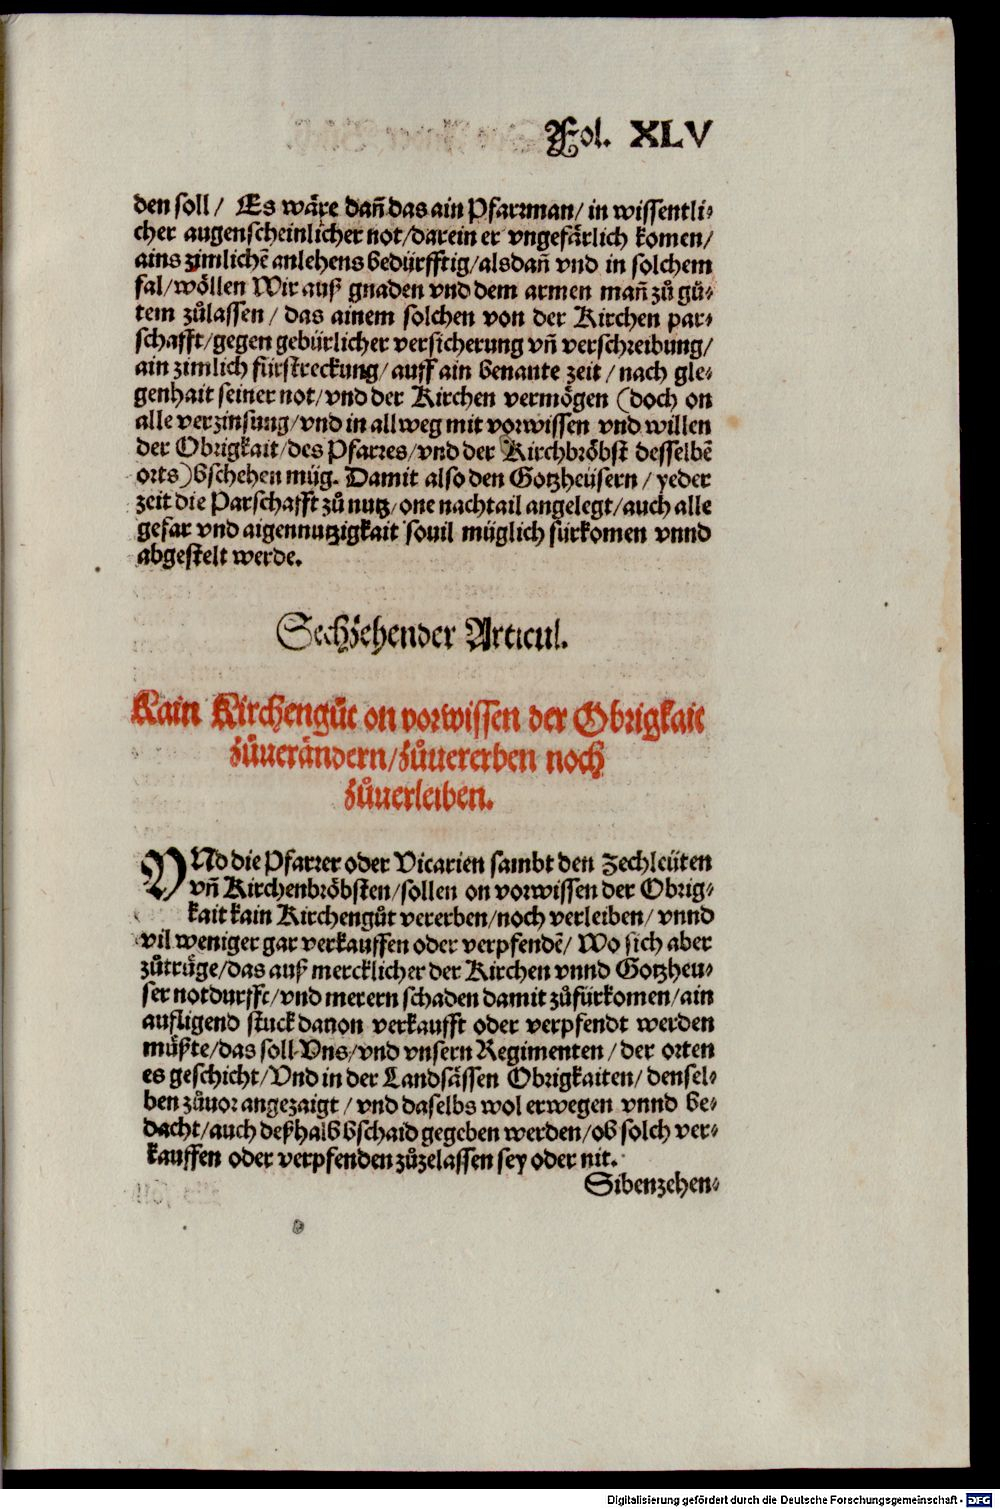 Fol. XLV
den soll/ Es wäre dañ das ain Pfarrman/ in wissentli⸗
cher augenscheinlicher not/darein er vngefärlich komen/
ains zimlichē anlehens bedürfftig/alsdañ vnd in solchem
fal/wöllen Wir auß gnaden vnd dem armen mañ zů gů⸗
tem zůlassen/ das ainem solchen von der Kirchen par⸗
schafft/gegen gebürlicher versicherung vñ verschreibung/
ain zimlich fürstreckung/auff ain benante zeit/nach gle⸗
genhait seiner not/vnd der Kirchen vermögen (doch on
alle verzinsung/vnd in allweg mit vorwissen vnd willen
der Obrigkait/des Pfarres/vnd der Kirchbröbst desselbē
orts) bschehen müg. Damit also den Gotzheüsern/ yeder
zeit die Parschafft zů nutz/one nachtail angelegt/auch alle
gefar vnd aigennutzigkait souil müglich fürkomen vnnd
abgestelt werde.
Sechzehender Articul.
Kain Kirchengůt on vorwissen der Obrigkait
zůuerändern/zůuererben noch
zůuerleiben.
VNd die Pfarrer oder Vicarien sambt den Zechleüten
vñ Kirchenbröbsten/sollen on vorwissen der Obrig⸗
kait kain Kirchengůt vererben/noch verleiben/ vnnd
vil weniger gar verkauffen oder verpfendē/ Wo sich aber
zůtrüge/das auß mercklicher der Kirchen vnnd Gotzheu⸗
ser notdurfft/vnd merern schaden damit zůfürkomen/ain
aufligend stuck dauon verkaufft oder verpfendt werden
müßte/das soll Vns/vnd vnsern Regimenten/der orten
es geschicht/Vnd in der Landsässen Obrigkaiten/ densel⸗
ben zůuor angezaigt/vnd daselbs wol erwegen vnnd be⸗
dacht/auch deßhalb bschaid gegeben werden/ob solch ver⸗
kauffen oder verpfenden zůzelassen sey oder nit.
Sibenzehen⸗
Digitalisierung gefördert durch die Deutsche Forschungsgemeinschaft - DFG